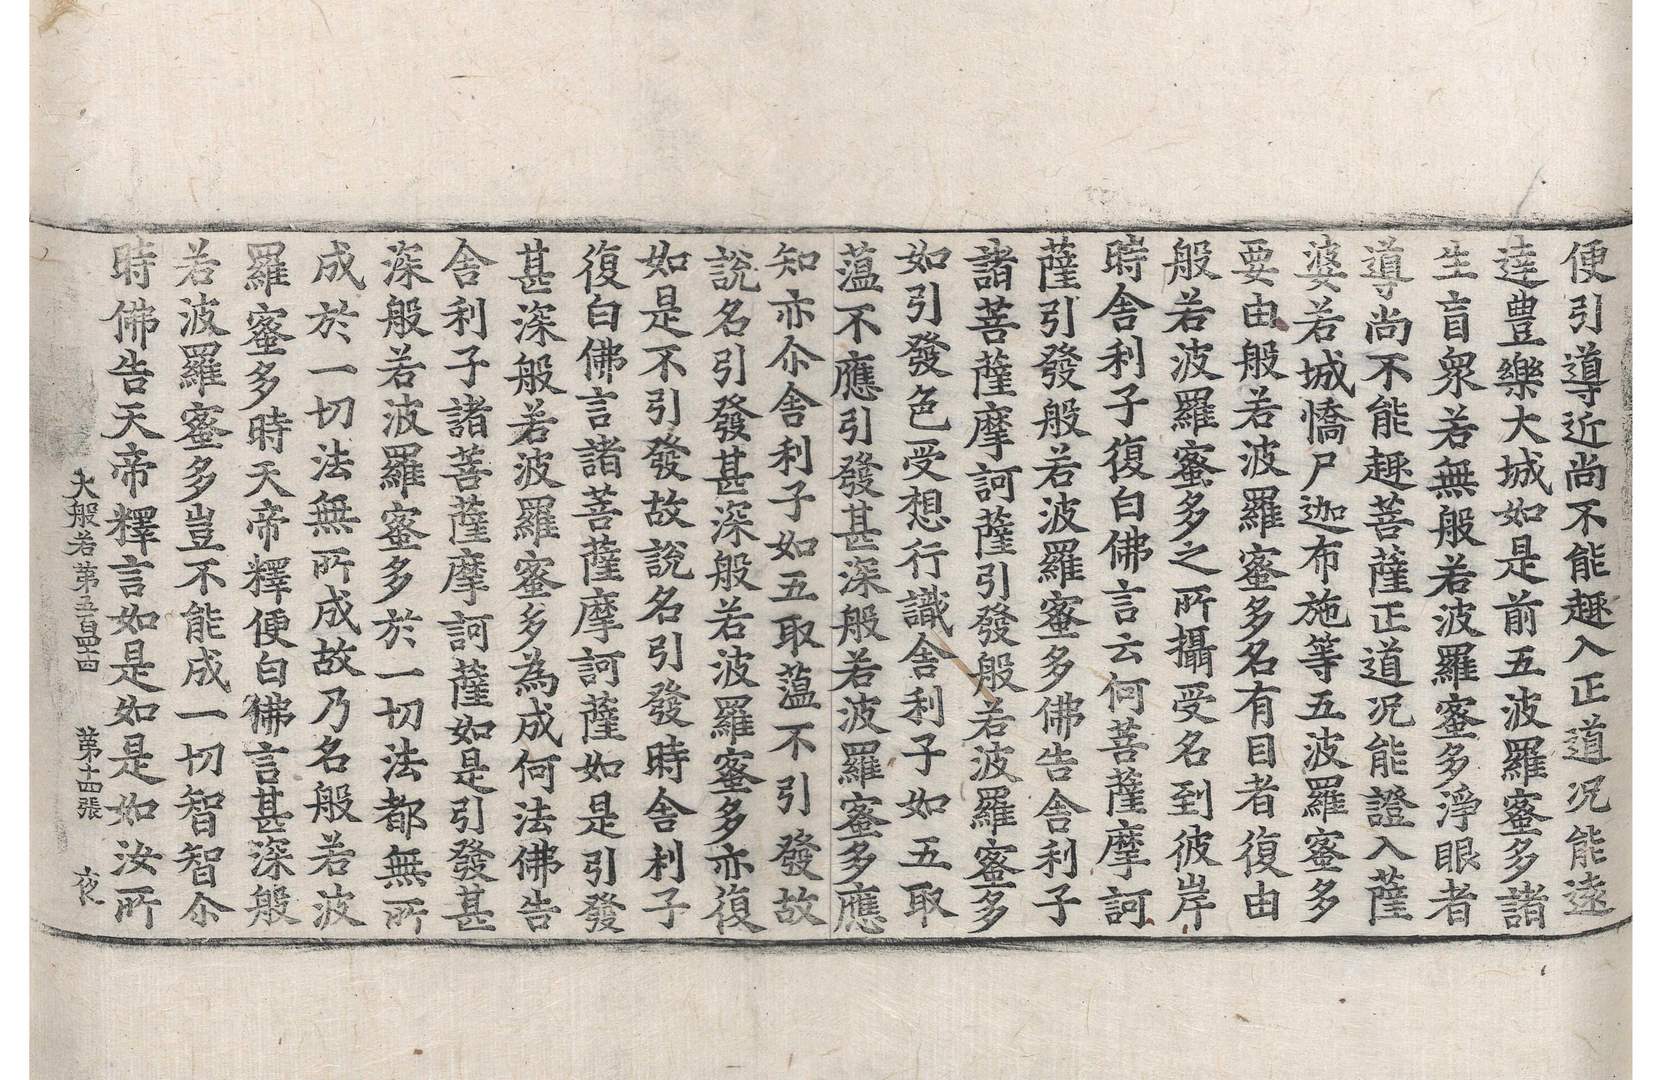 便引導近尚不能趣入正道况能遠
達豊樂大城如是前五波羅蜜多諸
生盲衆若無般若波羅蜜多淨眼者
導尚不能趣菩薩正道况能證入薩
婆若城憍尸迦布施等五波羅蜜多
要由般若波羅蜜多名有目者復由
般若波羅蜜多之所攝受名到彼岸
時舍利子復白佛言云何菩薩摩訶
薩引發般若波羅蜜多佛告舍利子
諸菩薩摩訶薩引發般若波羅蜜多
如引發色受想行識舍利子如五取
薀不應引發甚深般若波羅蜜多應
知亦尒舍利子如五取薀不引發故
說名引發甚深般若波羅蜜多亦復
如是不引發故說名引發時舍利子
復白佛言諸菩薩摩訶薩如是引發
甚深般若波羅蜜多為成何法佛告
舍利子諸菩薩摩訶薩如是引發甚
深般若波羅蜜多於一切法都無所
成於一切法無所成故乃名般若波
羅蜜多時天帝釋便白佛言甚深般
若波羅蜜多豈不能成一切智智尒
時佛告天帝釋言如是如是如汝所
大般若第五百四十四 第十四張 夜